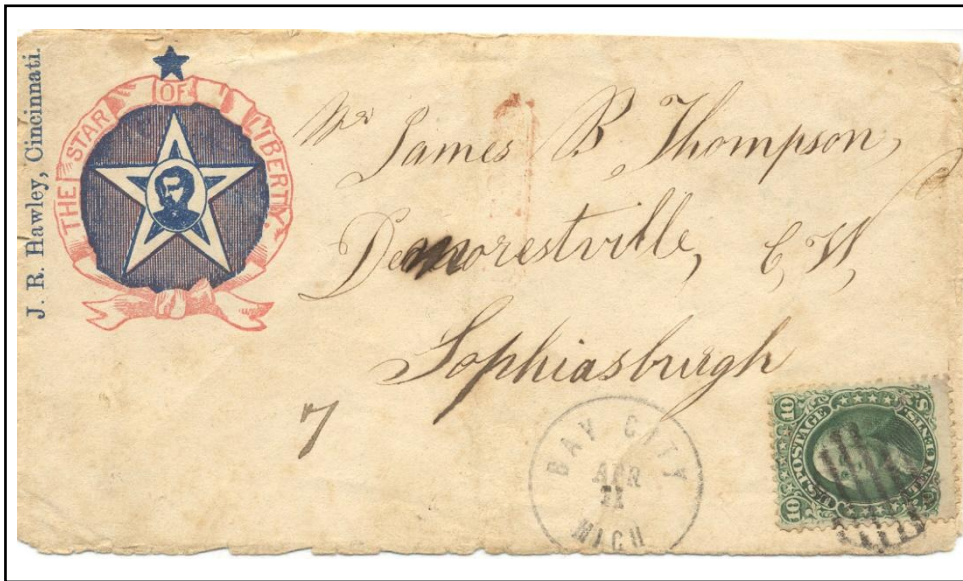 J. R. Hawley, Cincinnati.
THE STAR OF LIBERTY.
Mr James B Thompson,
Demorestville, C, W,
Sophiasburgh
7
BAY CITY
APR
11
MICH
U.S. POSTAGE
TEN CENTS
10
10
U
S